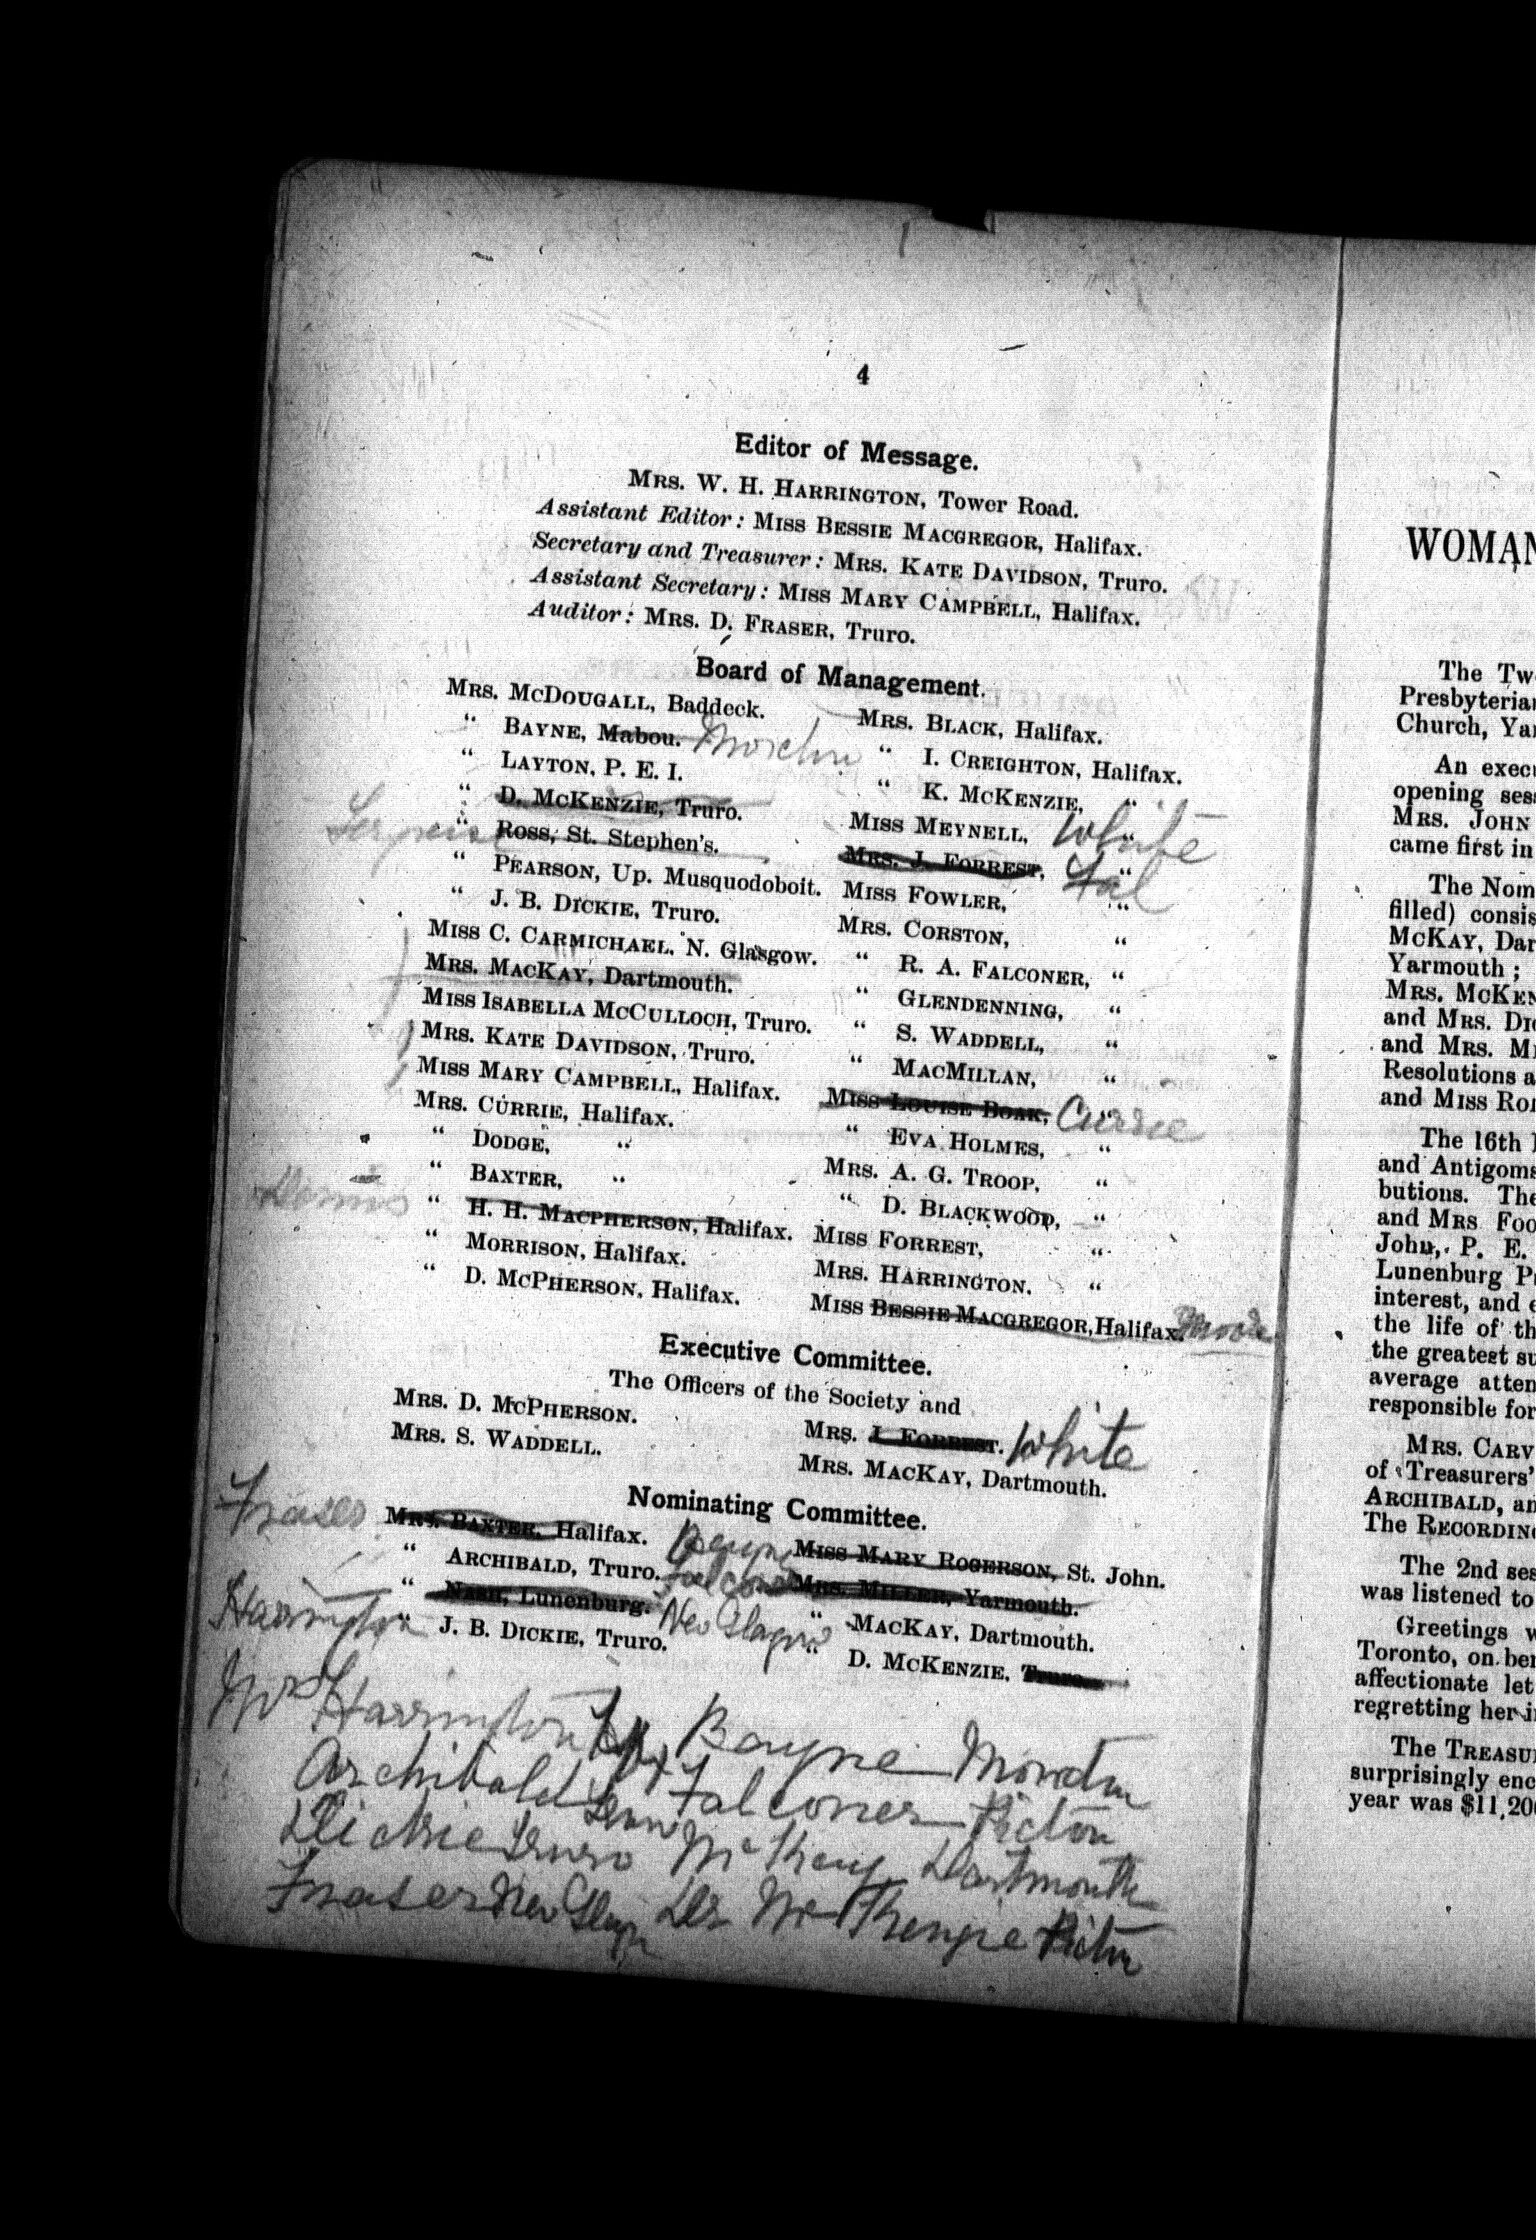 4
Editor of Message.
MRS. W. H. HARRINGTON, Tower Road.
Assistant Editor: MISS BESSIE MACGREGOR, Halifax.
Secretary and Treasurer: MRS. KATE DAVIDSON, Truro.
Assistant Secretary: MISS MARY CAMPBELL, Halifax.
Auditor: MRS. D. FRASER, Truro.
Board of Management.
MRS. MCDOUGALL, Baddeck.
" BAYNE, Mabou.
" LAYTON, P. E. I.
" D. MCKENZIE, Truro.
" ROSS, St. Stephen's.
" PEARSON, Up. Musquodoboit.
" J. B. DICKIE, Truro.
MISS C. CARMICHAEL, N. Glasgow.
MRS. MACKAY, Dartmouth.
MISS ISABELLA MCCULLOCH, Truro.
MRS. KATE DAVIDSON, Truro.
MISS MARY CAMPBELL, Halifax.
MRS. CURRIE, Halifax.
" DODGE, "
" BAXTER, "
" H. H. MACPHERSON, Halifax.
" MORRISON, Halifax.
" D. MCPHERSON, Halifax.
MRS. BLACK, Halifax.
" I. CREIGHTON, Halifax.
" K. MCKENZIE, "
MISS MEYNELL, " White
MRS. J. FORREST, "
MISS FOWLER, "
MRS. CORSTON, "
" R. A. FALCONER, "
" GLENDENNING, "
" S. WADDELL, "
" MACMILLAN, "
MISS LOUISE BOAK, " Currie
" EVA HOLMES, "
MRS. A. G. TROOP, "
" D. BLACKWOOD, "
MISS FORREST, "
MRS. HARRINGTON, "
MISS BESSIE MACGREGOR, Halifax.
Executive Committee.
The Officers of the Society and
MRS. D. MCPHERSON.
MRS. S. WADDELL.
MRS. J. FORREST. White
MRS. MACKAY, Dartmouth.
Nominating Committee.
Fraser MRS. BAXTER, Halifax.
" ARCHIBALD, Truro.
" NASH, Lunenburg.
Harrington " J. B. DICKIE, Truro.
Bayne MISS MARY ROGERSON, St. John.
Falconer MRS. MILLER, Yarmouth.
" MACKAY, Dartmouth.
" D. MCKENZIE, Truro.
Mrs Harrington Bayne
Archibald Falconer Pictou
Dickie Truro McKay Dartmouth
Fraser New Pictou
WOMAN
The Tw
Presbyterian
Church, Yar
An exec
opening ses
MRS. JOHN
came first in
The Nom
filled) consis
MCKAY, Dar
Yarmouth;
MRS. MCKEN
and MRS. DIC
and MRS. MI
Resolutions a
and MISS ROR
The 16th
and Antigoms
butions. The
and MRS FOO
John, P. E.
Lunenburg P
interest, and e
the life of th
the greatest su
average atten
responsible for
MRS. CARV
of Treasurers'
ARCHIBALD, an
The RECORDING
The 2nd ses
was listened to
Greetings w
Toronto, on ber
affectionate let
regretting her i
The TREASU
surprisingly enc
year was $11,20